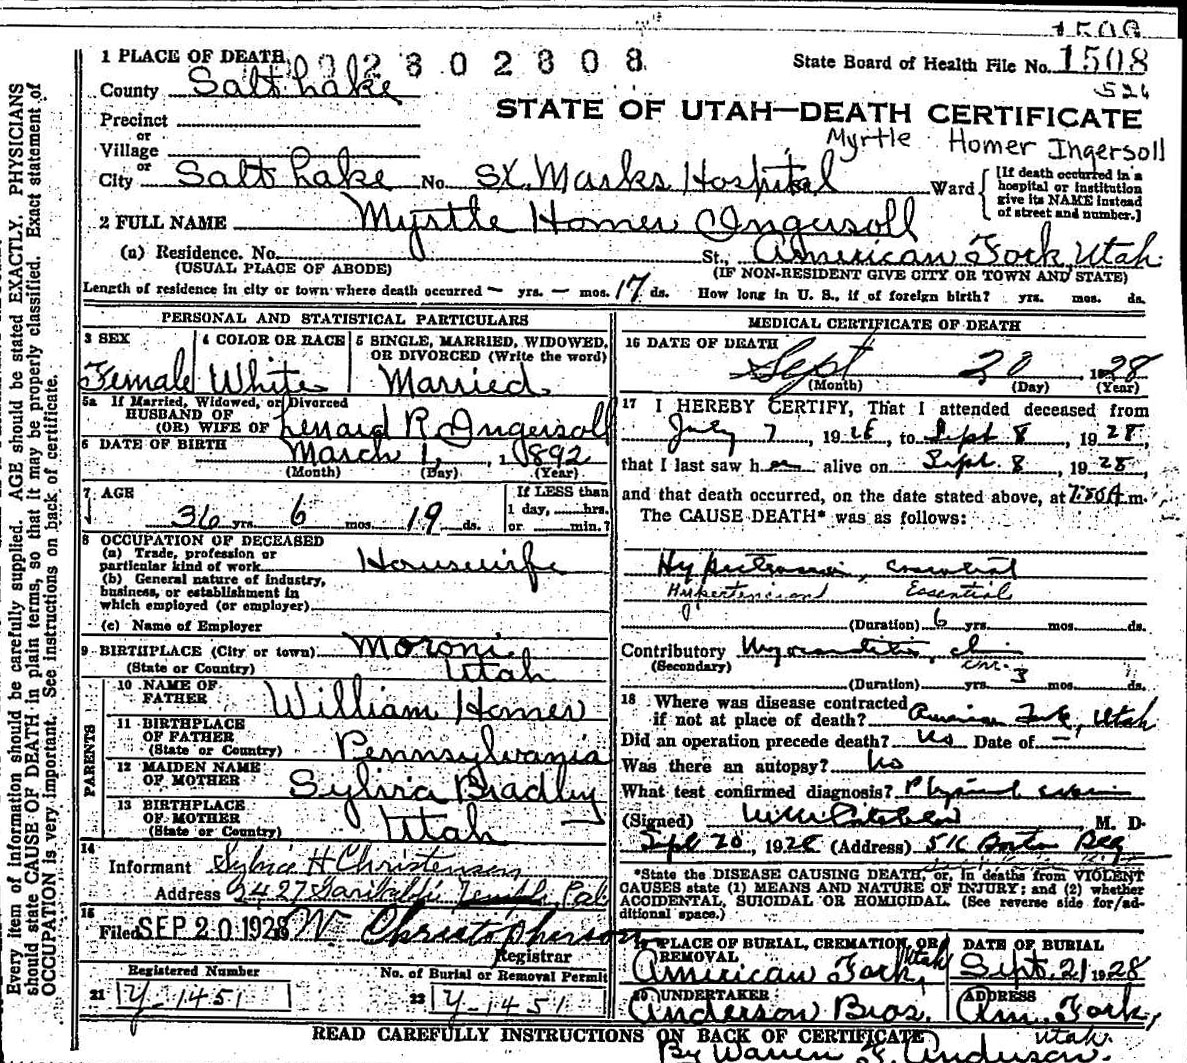 1508
1 PLACE OF DEATH 02302308 State Board of Health File No. 1508
526
County Salt Lake
STATE OF UTAH—DEATH CERTIFICATE
Precinct
or
Village
Myrtle Homer Ingersoll
or
City Salt Lake No. St. Marks Hospital Ward [If death occurred in a hospital or institution give its NAME instead of street and number.]
2 FULL NAME Myrtle Homer Ingersoll
(a) Residence. No. St., American Fork, Utah.
(USUAL PLACE OF ABODE) (IF NON-RESIDENT GIVE CITY OR TOWN AND STATE)
Length of residence in city or town where death occurred — yrs. — mos. 17 ds. How long in U. S., if of foreign birth? yrs. mos. ds.
PERSONAL AND STATISTICAL PARTICULARS
3 SEX 4 COLOR OR RACE 5 SINGLE, MARRIED, WIDOWED, OR DIVORCED (Write the word)
Female White Married
5a If Married, Widowed, or Divorced
HUSBAND OF
(OR) WIFE OF R. Ingersoll
6 DATE OF BIRTH March 1, 1892
(Month) (Day) (Year)
7 AGE If LESS than
1 day, hrs.
36 yrs. 6 mos. 19 ds. or min.?
8 OCCUPATION OF DECEASED
(a) Trade, profession or
particular kind of work Housewife
(b) General nature of industry,
business, or establishment in
which employed (or employer)
(c) Name of Employer
9 BIRTHPLACE (City or town) Moroni
(State or Country) Utah
PARENTS
10 NAME OF
FATHER William Homer
11 BIRTHPLACE
OF FATHER
(State or Country) Pennsylvania
12 MAIDEN NAME
OF MOTHER Sylvia Bradley
13 BIRTHPLACE
OF MOTHER
(State or Country) Utah
14
Informant Sylvia H Christensen
Address 2427 Garibaldi Temple, Cal.
15
Filed SEP 20 1928 W Christopherson
Registrar
Registered Number No. of Burial or Removal Permit
21 Y-1451 22 Y-1451
MEDICAL CERTIFICATE OF DEATH
16 DATE OF DEATH
Sept 20, 1928
(Month) (Day) (Year)
17 I HEREBY CERTIFY, That I attended deceased from
July 7, 1928, to Sept 8, 1928,
that I last saw her alive on Sept. 8, 1928
and that death occurred, on the date stated above, at 7:50 A m.
The CAUSE DEATH* was as follows:
Hypertension, essential
Hypertension Essential
(Duration) 6 yrs. mos. ds.
Contributory Myocarditis,
(Secondary)
(Duration) yrs. 3 mos. ds.
18 Where was disease contracted
if not at place of death? American Fork, Utah
Did an operation precede death? No Date of —
Was there an autopsy? No
What test confirmed diagnosis? Physical exam
(Signed) M. D.
Sept 20, 1928 (Address) 516 Boston Bldg
*State the DISEASE CAUSING DEATH, or, in deaths from VIOLENT
CAUSES state (1) MEANS AND NATURE OF INJURY; and (2) whether
ACCIDENTAL, SUICIDAL OR HOMICIDAL. (See reverse side for/ad-
ditional space.)
19 PLACE OF BURIAL, CREMATION, OR REMOVAL DATE OF BURIAL
American Fork, Utah Sept. 21 1928
20 UNDERTAKER ADDRESS
Anderson Bros. Am. Fork, Utah.
READ CAREFULLY INSTRUCTIONS ON BACK OF CERTIFICATE
By Warren Anderson
Every item of information should be carefully supplied. AGE should be stated EXACTLY. PHYSICIANS
should state CAUSE OF DEATH in plain terms, so that it may be properly classified. Exact statement of
OCCUPATION is very important. See instructions on back of certificate.